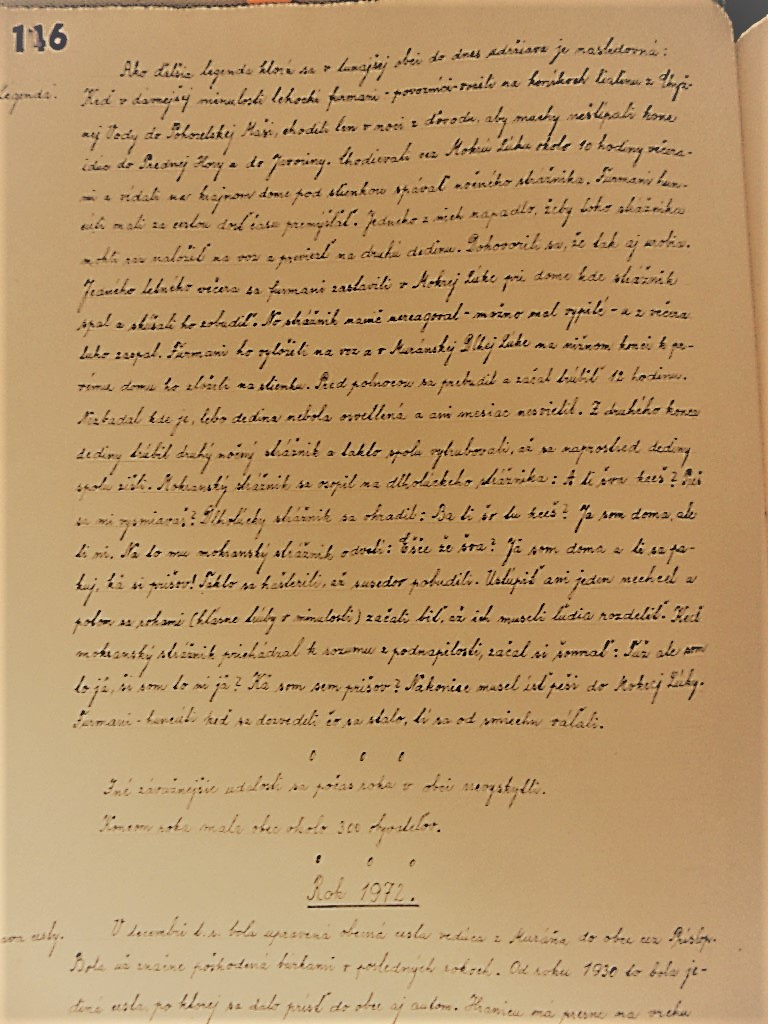 116
Ako ďalšia legenda ktorá sa v tunajšej obci do dnes udržiava je nasledovná:
Legenda.
Keď v dávnejšej minulosti lehockí furmani - povozníci vozili na koníkoch liatinu z Chyž-
nej Vody do Pohorelskej Maši, chodili len v noci z dôvodu, aby muchy neštípali kone
idúc do Prednej Hory a do Javoriny. Chodievali cez Mokrú Lúku okolo 10 hodiny večera-
mi a vídali na krajnom dome pod stienkou spávať nočného strážnika. Furmani hun-
cúti mali za cestou dosť času premýšľať. Jedneho z nich napadlo, žeby toho strážnika
mohli raz naložiť na voz a previezť na druhú dedinu. Dohovorili sa, že tak aj urobia.
Jedného letného večera sa furmani zastavili v Mokrej Lúke pri dome kde strážnik
spal a skúšali ho zobudiť. No strážnik namé nereagoval - možno mal vypité - a z večera
tuho zaspal. Furmani ho vyložili na voz a v Muránskej Dlhej Lúke na nižnom konci k pr-
vému domu ho zložili na stienku. Pred polnocou sa prebudil a začal trúbiť 12 hodinu.
Nezbadal kde je, lebo dedina nebola osvetlená a ani mesiac nesvietil. Z druhého konca
dediny trúbil druhý nočný strážnik a takto spolu vytrubovali, až sa naprostred dediny
spolu zišli. Mokranský strážnik sa osopil na dlholúckeho strážnika: A ti šva kceš?
sa mi vysmievaš? Dlholúcky strážnik sa ohradil: Ba ti šo tu kceš? Ja som doma, ale
ti ni. Na to mu mokranský strážnik odvetí: Ešče že šva? Já som doma a ti sa pa-
kuj, ká si prišov! Takto sa hašterili, až susedov pobudili. Ustúpiť ani jeden nechcel a
potom sa rohami (hlásne trúby v minulosti) začali biť, až ich museli ľudia rozdeliť. Keď
mokranský strážnik prichádzal k rozumu z podnapilosti, začal si šomrať: Túž ale som
to já, či som to ni já? Ká som sem prišov? Nakoniec musel ísť peši do Mokrej Lúky.
Furmani - huncúti keď sa dozvedeli čo sa stalo, tí sa od smiechu váľali.
Iné závažnejšie udalosti sa počas roka v obci nevyskytli.
Koncom roka mala obec okolo 300 obyvateľov.
Rok 1972.
V decembri t.r. bola upravená obecná cesta vedúca z Muráňa do obce cez Príslop.
cesty.
Bola už značne poškodená búrkami v posledných rokoch. Od roku 1930 to bola je-
diná cesta, po ktorej sa dalo prísť do obce aj autom. Hranicu má presne na vrchu